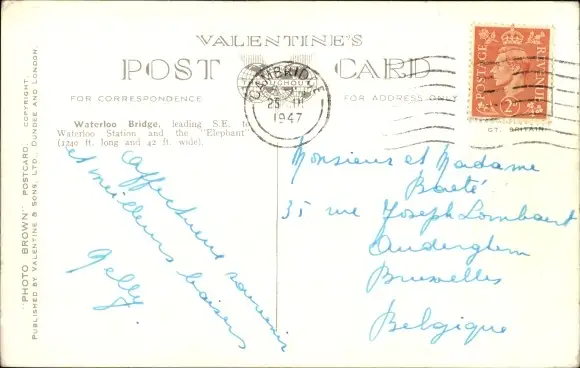 VALENTINE'S
POST CARD
FOR CORRESPONDENCE
FOR ADDRESS ONLY
CAMBRIDGE
1947
POSTAGE REVENUE
2D
GT. BRITAIN
Waterloo Bridge, leading S.E. to
Waterloo Station and the "Elephant"
(1240 ft. long and 42 ft. wide).
"PHOTO BROWN" POSTCARD. COPYRIGHT.
PUBLISHED BY VALENTINE & SONS, LTD. DUNDEE AND LONDON.
Affectueux souvenir
et meilleurs baisers
Nelly.
Monsieur et Madame
Baeté
35 rue Joseph Lombaert
Auderghem
Bruxelles
Belgique